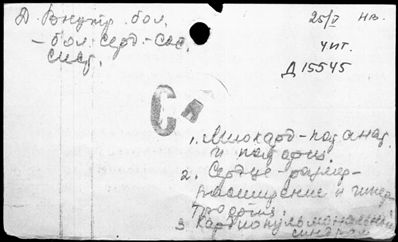 Д Внутр. бол.
- бол. серд.-сос.
сист.
25/V нв.
чит.
Д 15545
Сл
1. Миокард - пат. анат.
и патофиз.
2. Сердце - размер -
расширение и гипер-
трофия.
3. Кардиопульмональный
синдром